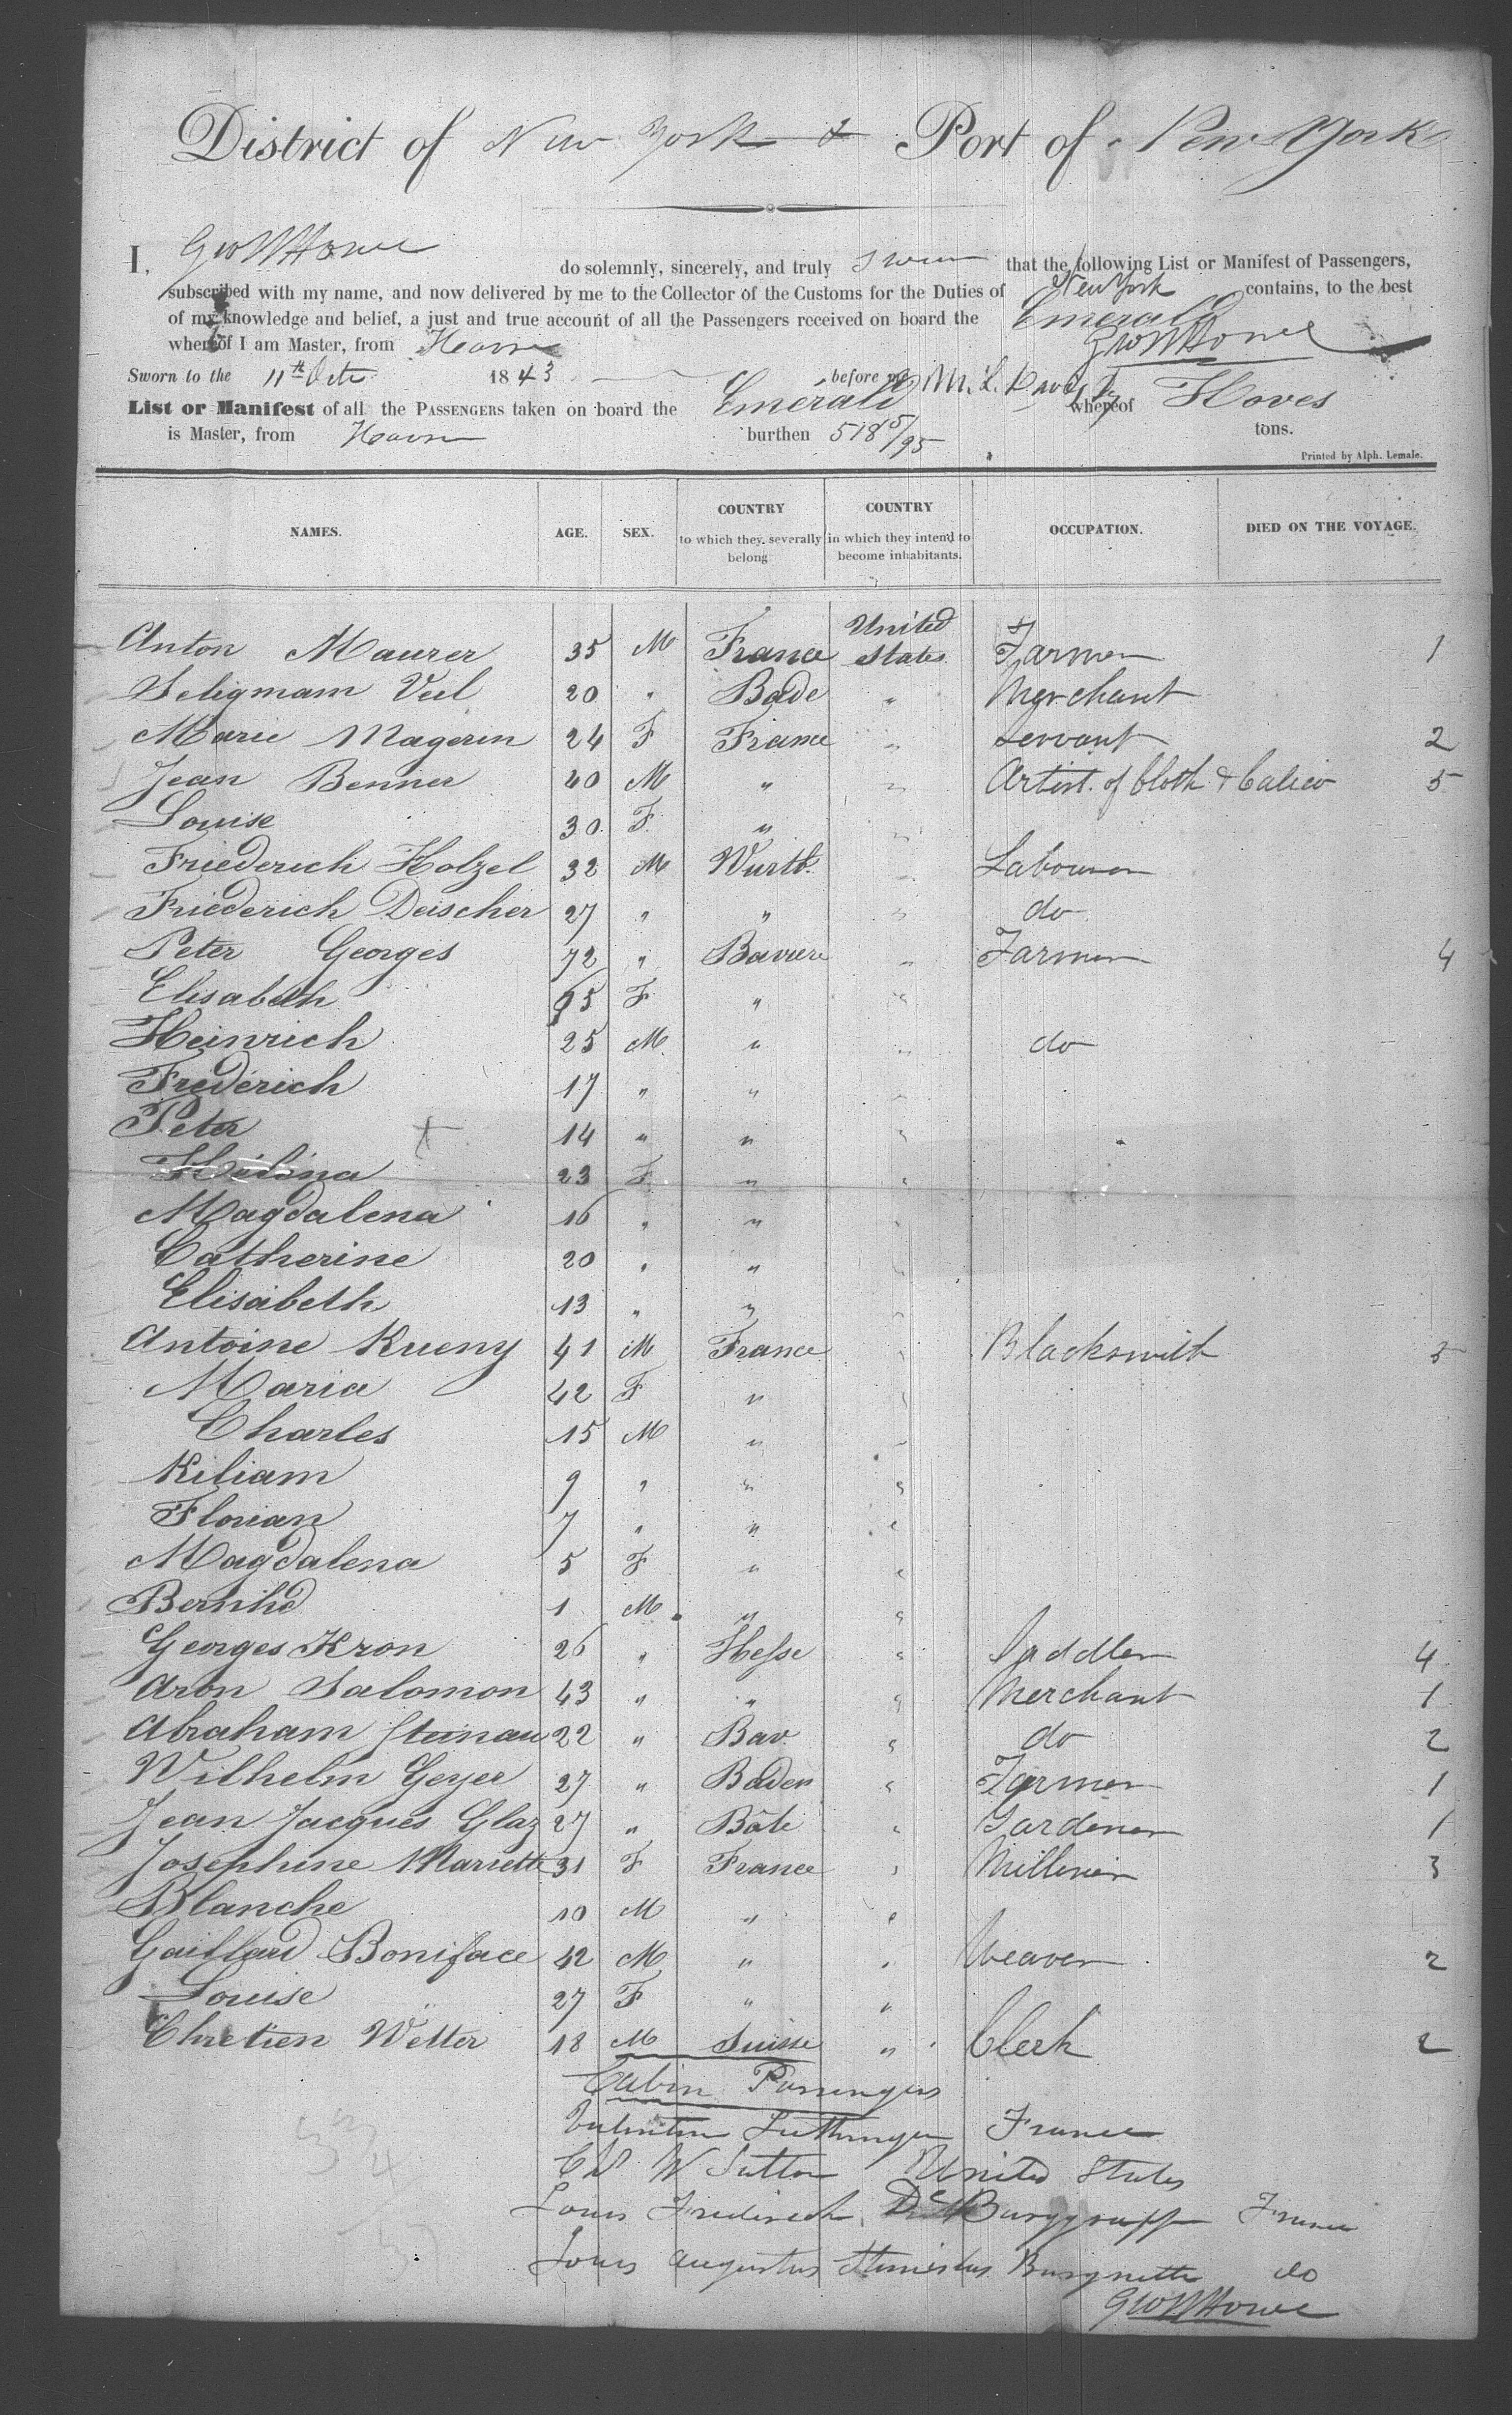 District of New York & Port of New York
I, Geo W Howe do solemnly, sincerely, and truly swear that the following List or Manifest of Passengers,
subscribed with my name, and now delivered by me to the Collector of the Customs for the Duties of New York contains, to the best
of my knowledge and belief, a just and true account of all the Passengers received on board the Emerald
whereof I am Master, from Havre Geo W Howe
Sworn to the 11th Octr 1843 before me M. L. Davis
List or Manifest of all the PASSENGERS taken on board the Emerald whereof Howes
is Master, from Havre burthen 518 5/95 tons.
Printed by Alph. Lemale.
NAMES. AGE. SEX. COUNTRY to which they severally belong COUNTRY in which they intend to become inhabitants. OCCUPATION. DIED ON THE VOYAGE.
Anton Maurer 35 M France United States Farmer 1
Seligmam Veil 20 " Bade " Merchant
Marie Magerin 24 F France " Servant 2
Jean Benner 40 M " " Artist of Cloth & Calico 5
Louise 30 F " "
Friederich Holzel 32 M Wurtb. " Labourer
Friederich Deischer 27 " " " do
Peter Georges 72 " Baviere " Farmer 4
Elisabeth 65 F " "
Heinrich 25 M " " do
Frederich 17 " " "
Peter 14 " " "
Héléna 23 F " "
Magdalena 16 " " "
Catherine 20 " " "
Elisabeth 13 " " "
Antoine Kueny 41 M France " Blacksmith 5
Maria 42 F " "
Charles 15 M " "
Kiliam 9 " " "
Florian 7 " " "
Magdalena 5 F " "
Bernhd 1 M " "
Georges Kron 26 " Hesse " Saddler 4
Aron Salomon 43 " " " Merchant 1
Abraham Steinau 22 " Bav. " do 2
Wilhelm Geyer 27 " Baden " Farmer 1
Jean Jacques Glaz 27 " Bâle " Gardener 1
Josephine Mariette 31 F France " Millener 3
Blanche 10 M " "
Gaillard Boniface 42 M " " Weaver 2
Louise 27 F " "
Chretien Wetter 18 M Suisse " Clerk 2
Cabin Passengers
Valentin France
W Sutton United States
Louis Frederick De Burggraff France
Louis Augustus do
Geo W Howe